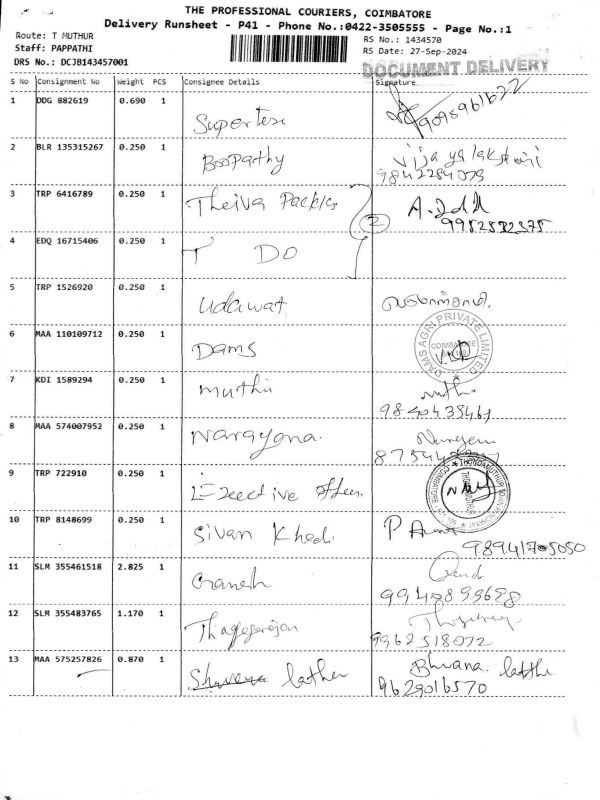 THE PROFESSIONAL COURIERS, COIMBATORE
Delivery Runsheet - P41 - Phone No.:0422-3505555 - Page No.:1
Route: T MUTHUR
Staff: PAPPATHI
DRS No.: DCJB143457001
RS No.: 1434570
RS Date: 27-Sep-2024
DOCUMENT DELIVERY
S No Consignment No Weight PCS Consignee Details Signature
1 DDG 882619 0.690 1
9095961622
2 BLR 135315267 0.250 1 Boopathy Vijayalakshmi
9842284079
3 TRP 6416789 0.250 1 Theiva
2
9952532375
4 EDQ 16715406 0.250 1 T DO
5 TRP 1526920 0.250 1 Udawat
6 MAA 110109712 0.250 1 Dams
DAMS AGRI PRIVATE LIMITED
COIMBATORE
7 KDI 1589294 0.250 1 muthu
8 MAA 574007952 0.250 1 Narayana.
9 TRP 722910 0.250 1
10 TRP 8148699 0.250 1 Sivan
11 SLM 355461518 2.825 1 Ganesh
12 SLM 355483765 1.170 1
9962518072
13 MAA 575257826 0.870 1 lathee Bhvana
9629016570